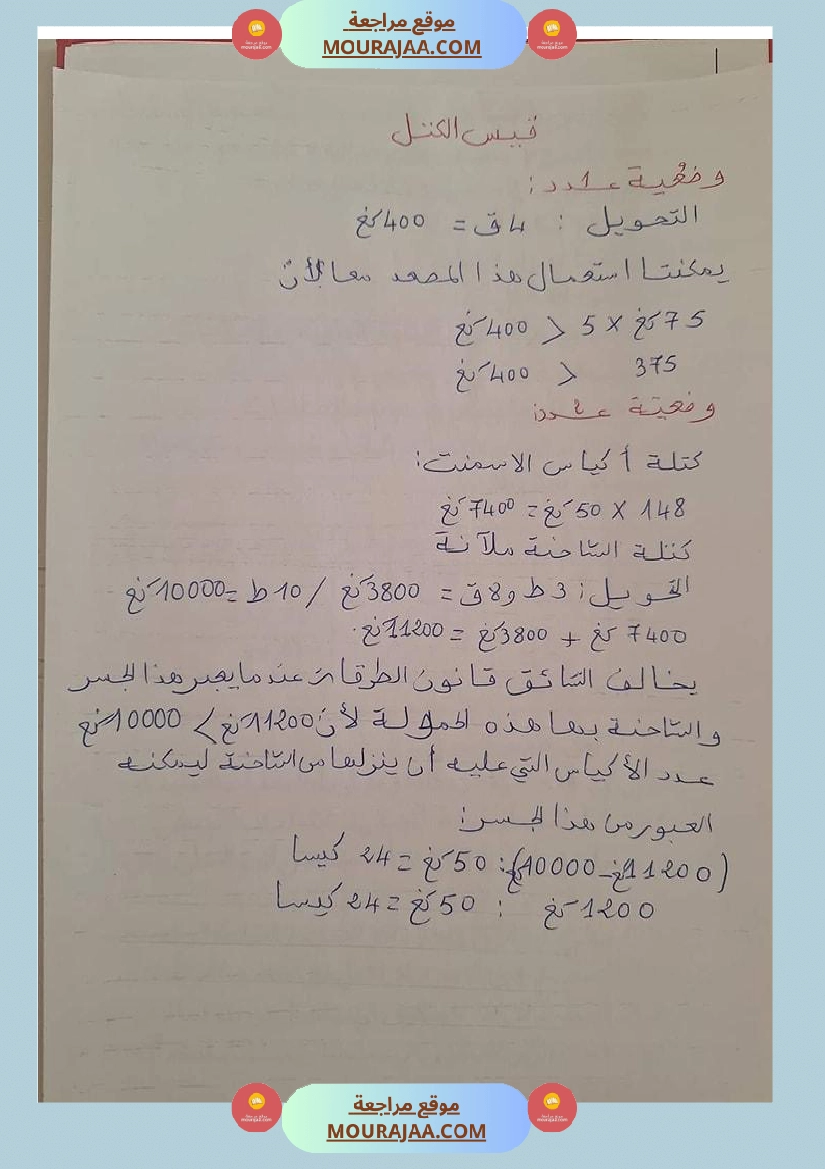 موقع مراجعة
MOURAJAA.COM
قيس الكتل
وضعية عـ1ـدد :
التحويل : 4ق = 400كغ
يمكننا استعمال هذا المصعد معا لأنّ
75كغ X 5 < 400كغ
375 < 400كغ
وضعيّة عـ2ـدد:
كتلة أكياس الاسمنت:
148 X 50كغ = 7400كغ
كتلة الشاحنة ملآنة
التحويل: 3ط و8ق = 3800كغ / 10ط = 10000كغ
7400 كغ + 3800كغ = 11200كغ.
يخالف السّائق قانون الطرقات عندما يعبر هذا الجسر
والشاحنة بها هذه الحمولة لأنّ 11200كغ > 10000كغ
عدد الأكياس التي عليه أن ينزلها من الشاحنة ليمكنه
العبور من هذا الجسر:
(11200كغ - 10000كغ) : 50كغ = 24 كيسا
1200كغ : 50كغ = 24 كيسا
موقع مراجعة
MOURAJAA.COM